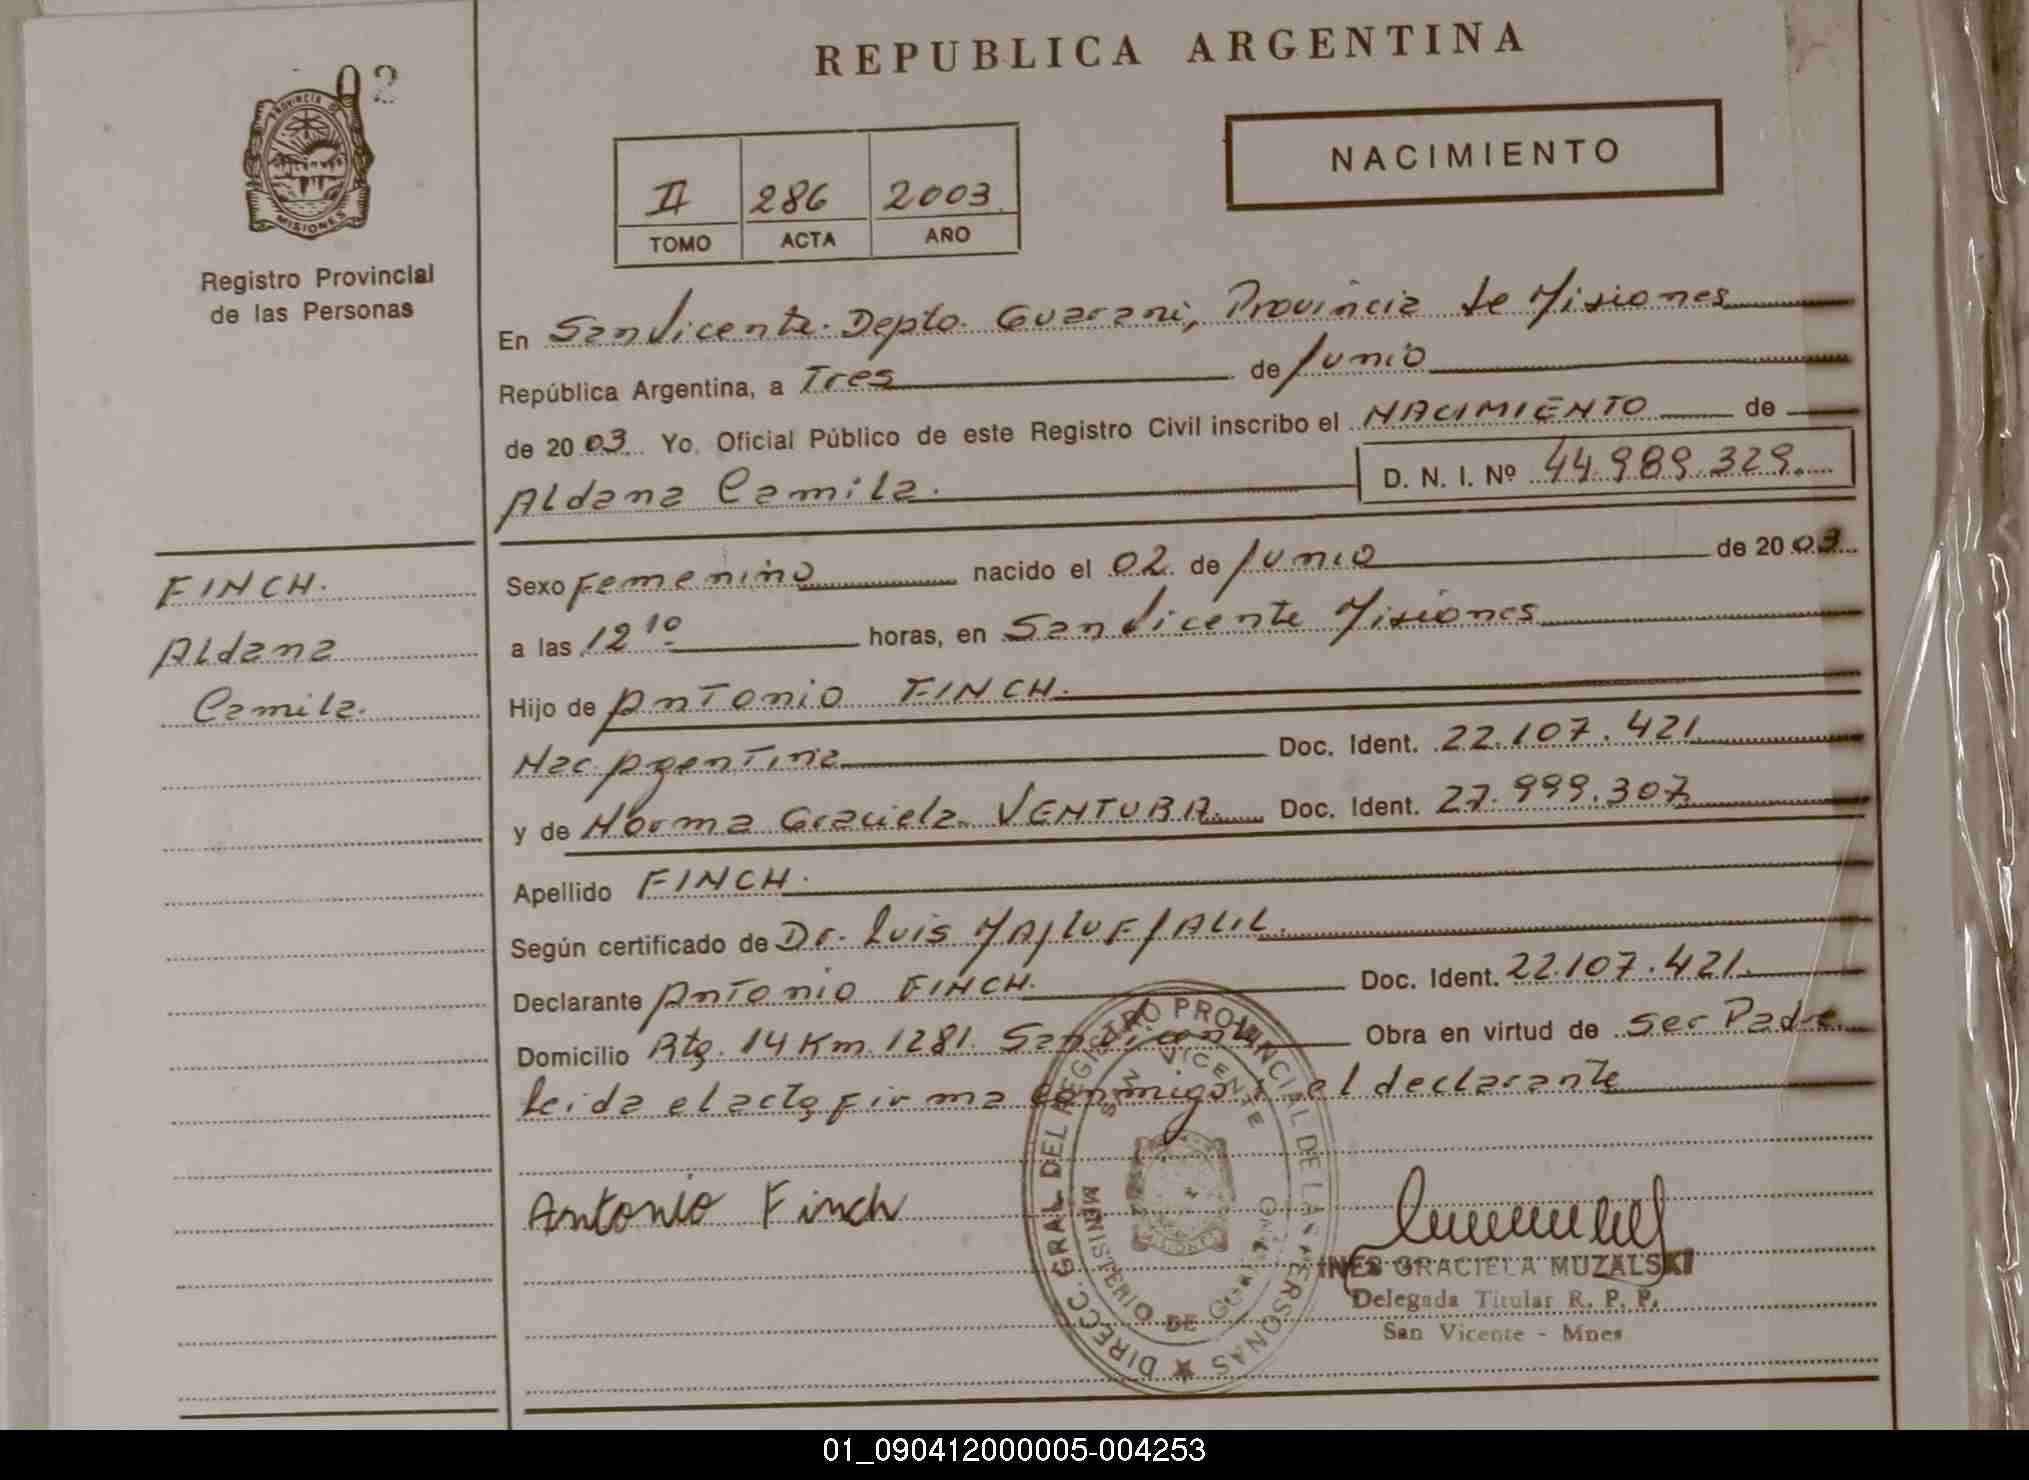 02
PROVINCIA DE
MISIONES
Registro Provincial
de las Personas
REPUBLICA ARGENTINA
NACIMIENTO
II 286 2003
TOMO ACTA AÑO
En San Vicente. Depto. Guarani, Provincia de Misiones
República Argentina, a Tres de Junio
de 2003. Yo, Oficial Público de este Registro Civil inscribo el NACIMIENTO de
Aldana Camila. D. N. I. Nº 44.989.329.
FINCH.
Aldana
Camila.
Sexo Femenino nacido el 02 de Junio de 2003
a las 12 10 horas, en San Vicente Misiones
Hijo de Antonio FINCH.
Nac. Argentina Doc. Ident. 22.107.421
y de Norma Graciela VENTURA. Doc. Ident. 27.999.307
Apellido FINCH.
Según certificado de Dr. Luis
Declarante Antonio FINCH. Doc. Ident. 22.107.421.
Domicilio Rta. 14 Km 1281. San Vicente Obra en virtud de ser Padre
Leida el acta firma conmigo el declarante
Antonio Finch
DIRECC. GRAL DEL REGISTRO PROVINCIAL DE LAS PERSONAS
SAN VICENTE
MINISTERIO DE
MISIONES
INES GRACIELA MUZALSKI
Delegada Titular R. P. P.
San Vicente - Mnes
01_090412000005-004253